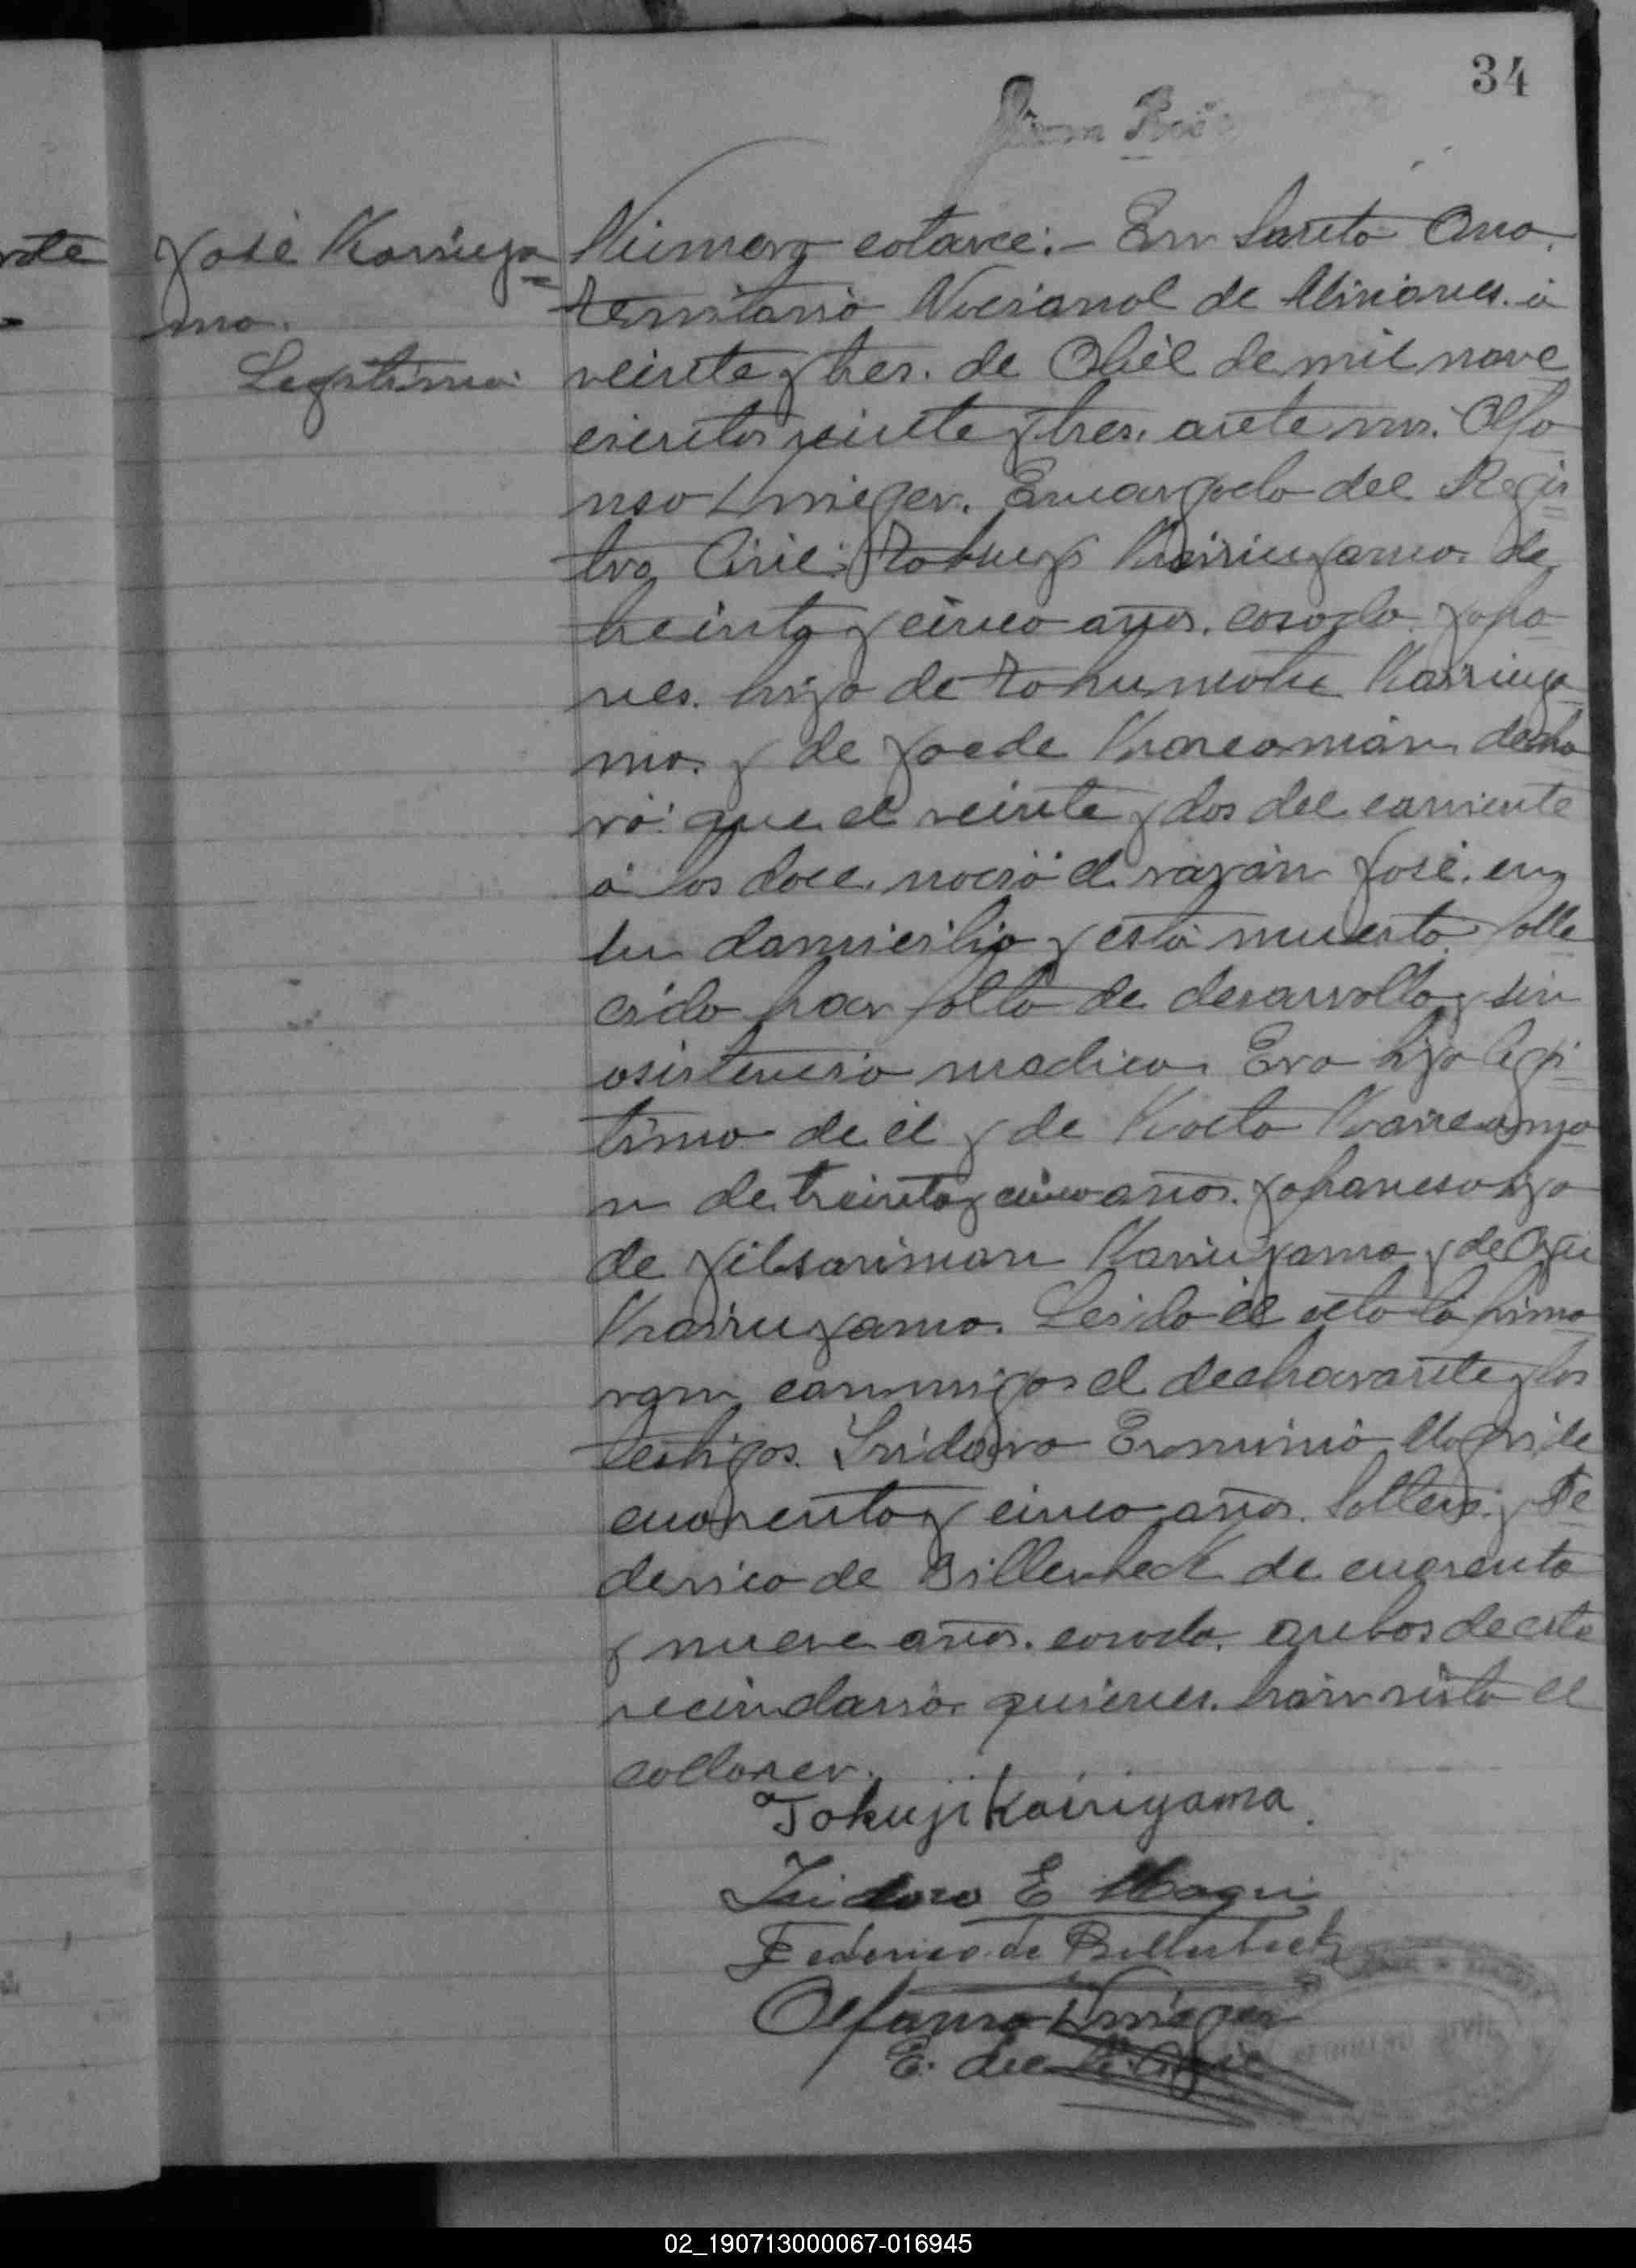 34
José Kairiya=
ma.
Legitimo.
Número catorce:- En Santa Ana.
territorio Nacional de Misiones. á
veinte y tres. de Abril de mil nove
cientos veinte y tres. ante mi. Alfo
nso Krieger. Encargado del Regis
tro Civil: Tokuji Kairiyama. de
treinta y cinco años. casado. japo
nes. hijo de Kairiya
ma. y de decla
ró: que el veinte y dos del corriente
á las doce. nació el varón José. en
su domicilio y está muerto. falle
cido por falta de desarrollo y sin
asistencia medica. Era hijo legi
timo de él y de
n de treinta y cinco años. japonesa hija
de Kairiyama y de
Kairiyama. Leida el acta la firma
ron conmigo el declarante y los
testigos. Isidoro Erminio Magri de
cuarenta y cinco años. soltero. y Fe
derico de Billerbeck de cuarenta
y nueve años. casado. ambos de este
vecindario. quienes. han visto el
cadaver.
Tokuji Kairiyama.
Isidoro E Magri
Federico de Billerbeck
Alfonso Krieger
E. del R. Civil
rote
02_190713000067-016945